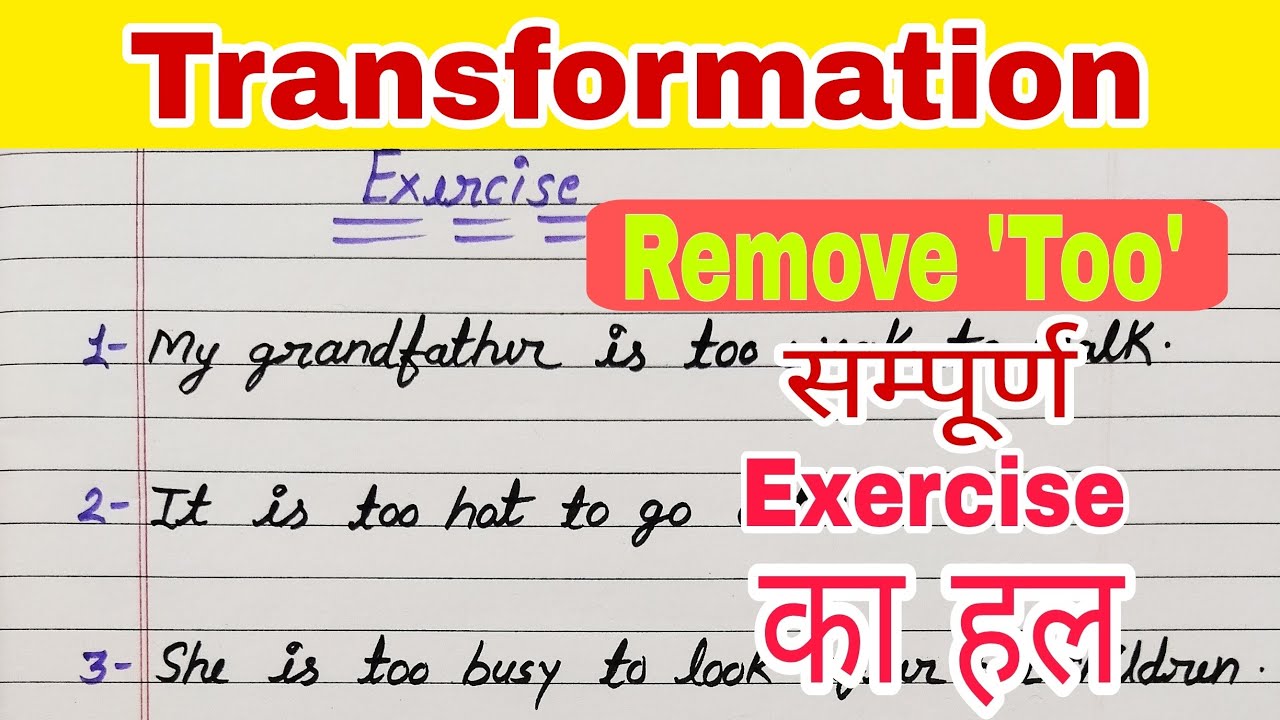 Transformation
Exercise
Remove 'Too'
1- My grandfather is too
सम्पूर्ण
Exercise
का हल
2- It is too hot to go
3- She is too busy to look children.